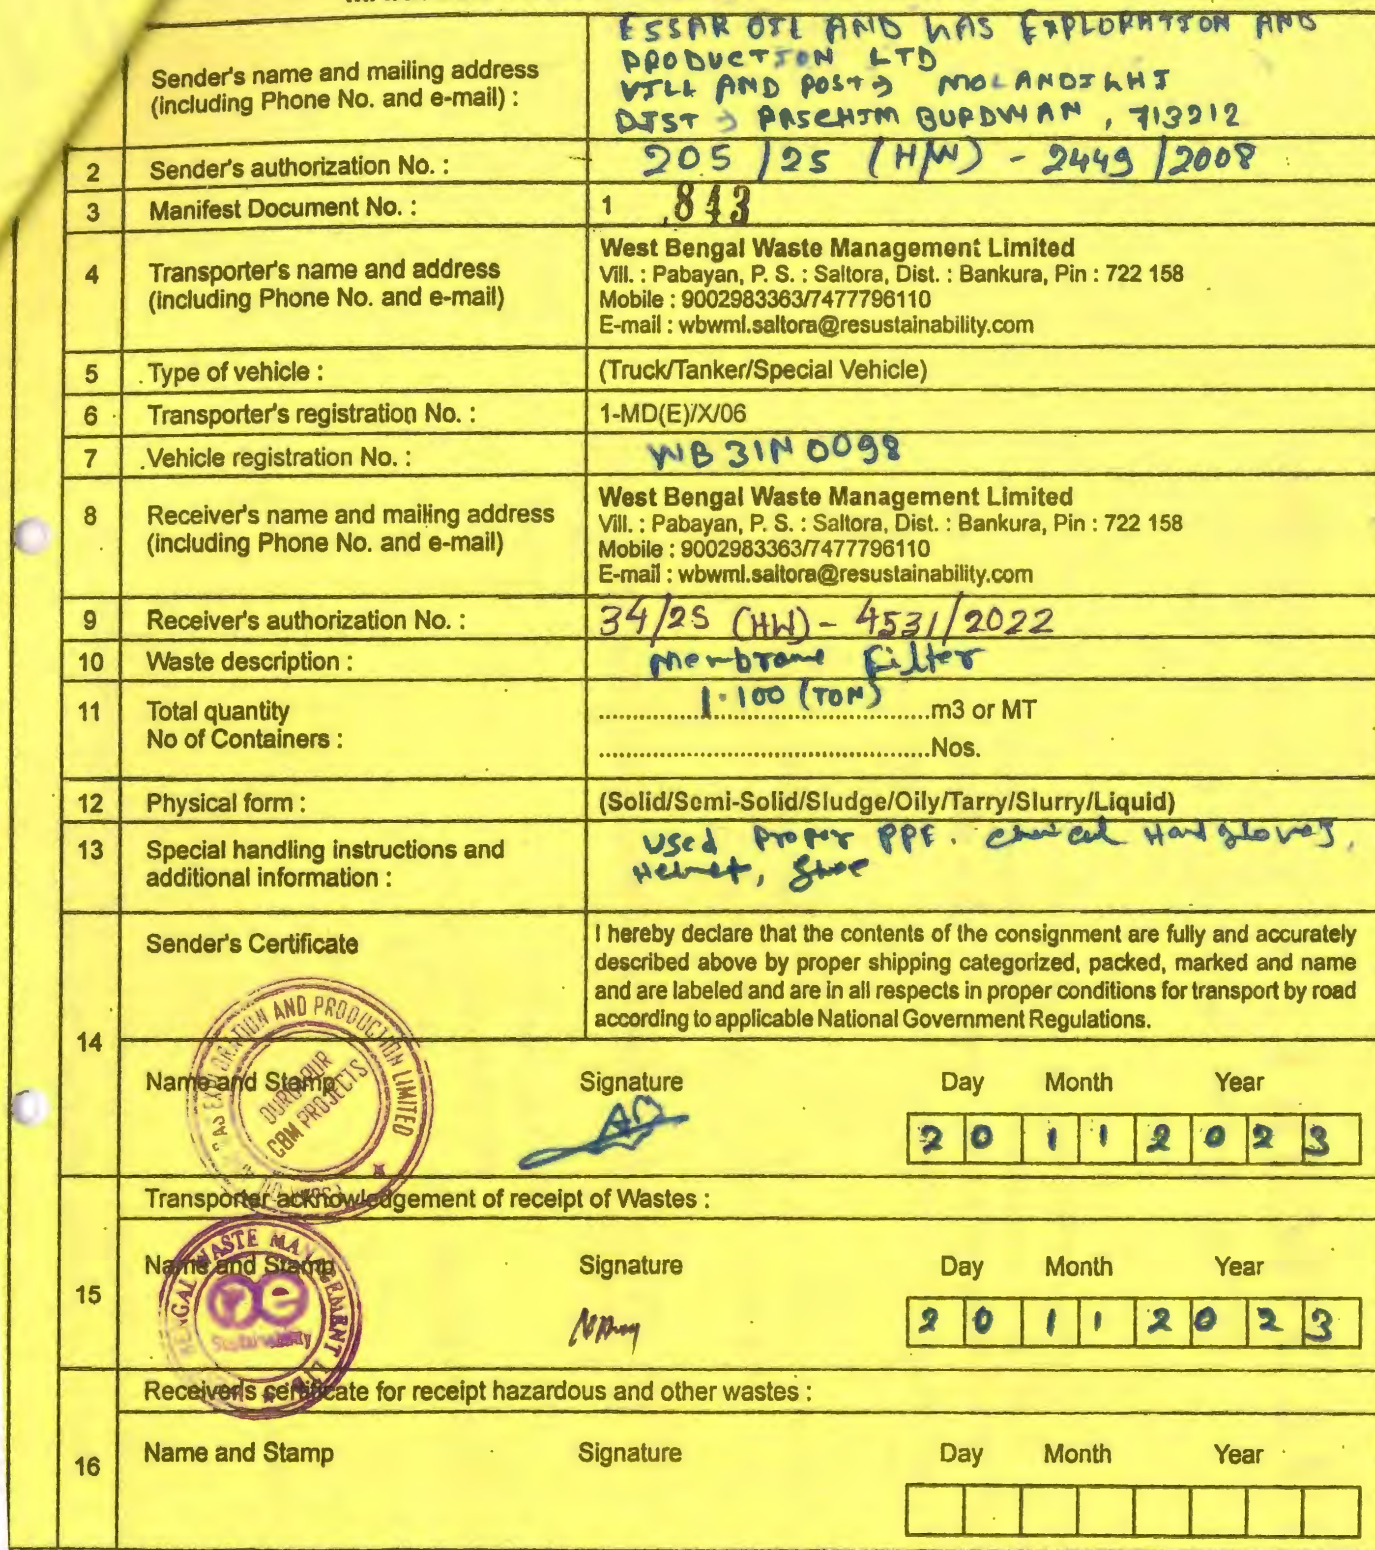 ESSAR OIL AND GAS EXPLORATION AND
Sender's name and mailing address
(including Phone No. and e-mail) :
PRODUCTION LTD
VILL AND POST → MOLANDIGHI
DIST → PASCHIM BURDWAN, 713212
2 Sender's authorization No. : 205/25 (H/W) - 2449/2008
3 Manifest Document No. : 1 843
4 Transporter's name and address
(including Phone No. and e-mail)
West Bengal Waste Management Limited
Vill. : Pabayan, P. S. : Saltora, Dist. : Bankura, Pin : 722 158
Mobile : 9002983363/7477796110
E-mail : wbwml.saltora@resustainability.com
5 Type of vehicle : (Truck/Tanker/Special Vehicle)
6 Transporter's registration No. : 1-MD(E)/X/06
7 Vehicle registration No. : WB31N0098
8 Receiver's name and mailing address
(including Phone No. and e-mail)
West Bengal Waste Management Limited
Vill. : Pabayan, P. S. : Saltora, Dist. : Bankura, Pin : 722 158
Mobile : 9002983363/7477796110
E-mail : wbwml.saltora@resustainability.com
9 Receiver's authorization No. : 34/25 (HW) - 4531/2022
10 Waste description : Membrane Filter
11 Total quantity 1.100 (TON) m3 or MT
No of Containers : Nos.
12 Physical form : (Solid/Semi-Solid/Sludge/Oily/Tarry/Slurry/Liquid)
13 Special handling instructions and
additional information :
Used Proper PPE. Chemical Hand gloves,
Helmet, Shoe
14 Sender's Certificate
I hereby declare that the contents of the consignment are fully and accurately
described above by proper shipping categorized, packed, marked and name
and are labeled and are in all respects in proper conditions for transport by road
according to applicable National Government Regulations.
Name and Stamp Signature Day Month Year
20 11 2023
GAS EXPLORATION AND PRODUCTION LIMITED
DURGAPUR
CBM PROJECTS
Transporter acknowledgement of receipt of Wastes :
15 Name and Stamp Signature Day Month Year
20 11 2023
BENGAL WASTE MANAGEMENT LTD
re
Sustainability
Receiver's certificate for receipt hazardous and other wastes :
16 Name and Stamp Signature Day Month Year